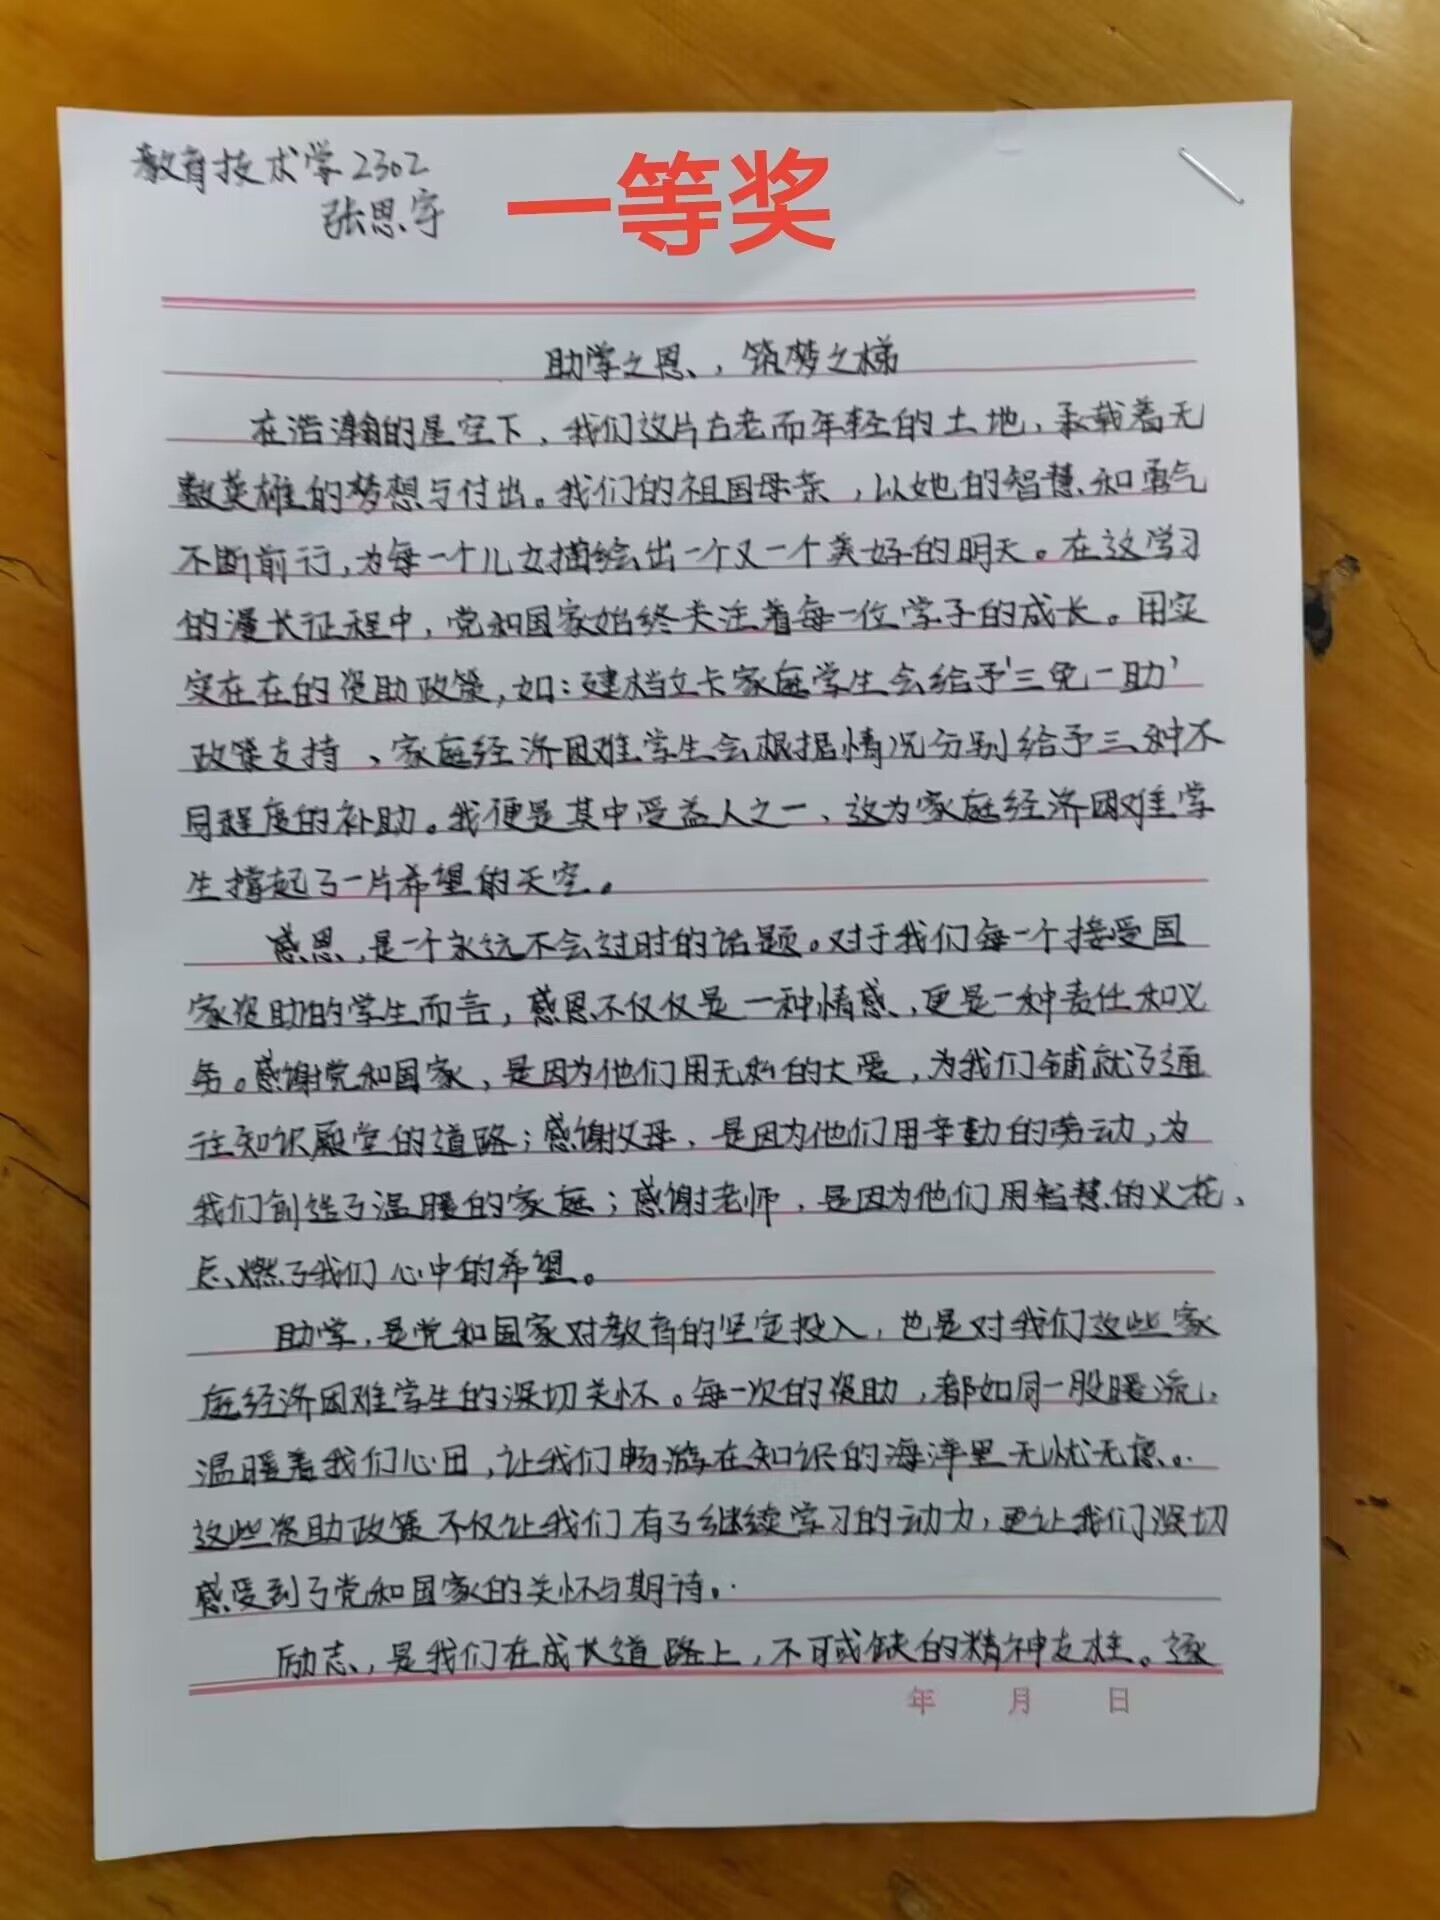 教育技术学2302
张思宇
一等奖
助学之恩，筑梦之梯
在浩瀚的星空下，我们这片古老而年轻的土地，承载着无
数英雄的梦想与付出。我们的祖国母亲，以她的智慧和勇气
不断前行，为每一个儿女描绘出一个又一个美好的明天。在这学习
的漫长征程中，党和国家始终关注着每一位学子的成长。用实
实在在的资助政策，如：建档立卡家庭学生会给予'三免一助'
政策支持、家庭经济困难学生会根据情况分别给予三种不
同程度的补助。我便是其中受益人之一、这为家庭经济困难学
生撑起了一片希望的天空。
感恩，是一个永远不会过时的话题。对于我们每一个接受国
家资助的学生而言，感恩不仅仅是一种情感，更是一种责任和义
务。感谢党和国家，是因为他们用无私的大爱，为我们铺就了通
往知识殿堂的道路；感谢父母，是因为他们用辛勤的劳动，为
我们创造了温暖的家庭；感谢老师，是因为他们用智慧的火花，
点燃了我们心中的希望。
助学，是党和国家对教育的坚定投入，也是对我们这些家
庭经济困难学生的深切关怀。每一次的资助，都如同一股暖流，
温暖着我们心田，让我们畅游在知识的海洋里无忧无虑。
这些资助政策不仅让我们有了继续学习的动力，更让我们深切
感受到了党和国家的关怀与期待。
励志，是我们在成长道路上，不可或缺的精神支柱。逐
年 月 日